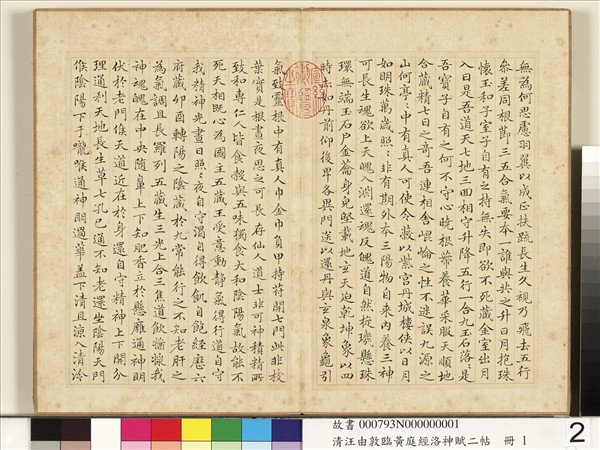 無為何思慮羽翼以成正扶疏長生久視乃飛去五行
參差同根節三五合氣要本一誰與共之升日月抱珠
懷玉和子室子自有之持無失即欲不死藏金室出月
入日是吾道天七地三回相守升降五行一合九玉石落〻是
吾寶子自有之何不守心曉根蒂養華采服天順地
合藏精七日之奇吾連相舍崐崘之性不迷誤九源之
山何亭〻中有真人可使令蔽以紫宮丹城樓俠以日月
如明珠萬歲照〻非有期外本三陽物自來內養三神
可長生魂欲上天魄入淵還魂反魄道自然旋璣懸珠
環無端玉石戶金籥身兒堅載地玄天迫乾坤象以四
時赤如丹前仰後卑各異門送以還丹與玄泉象龜引
氣致靈根中有真人巾金巾負甲持符開七門此非枝
葉實是根晝夜思之可長存仙人道士非可神積精所
致和專仁人皆食穀與五味獨食大和陰陽氣故能不
死天相既心為國主五藏王受意動靜氣得行道自守
我精神光晝日照〻夜自守渴自得飲飢自飽經歷六
府藏卯酉轉陽之陰藏於九常能行之不知老肝之
為氣調且長羅列五藏生三光上合三焦道飲漿我
神魂魄在中央隨鼻上下知肥香立於懸膺通神明
伏於老門候天道近在於身還自守精神上下開分
理通利天地長生草七孔已通不知老還坐陰陽天門
候陰陽下于嚨喉通神明過華蓋下清且涼入清泠
故書 000793N000000001
清汪由敦臨黃庭經洛神賦二帖 冊 1
2